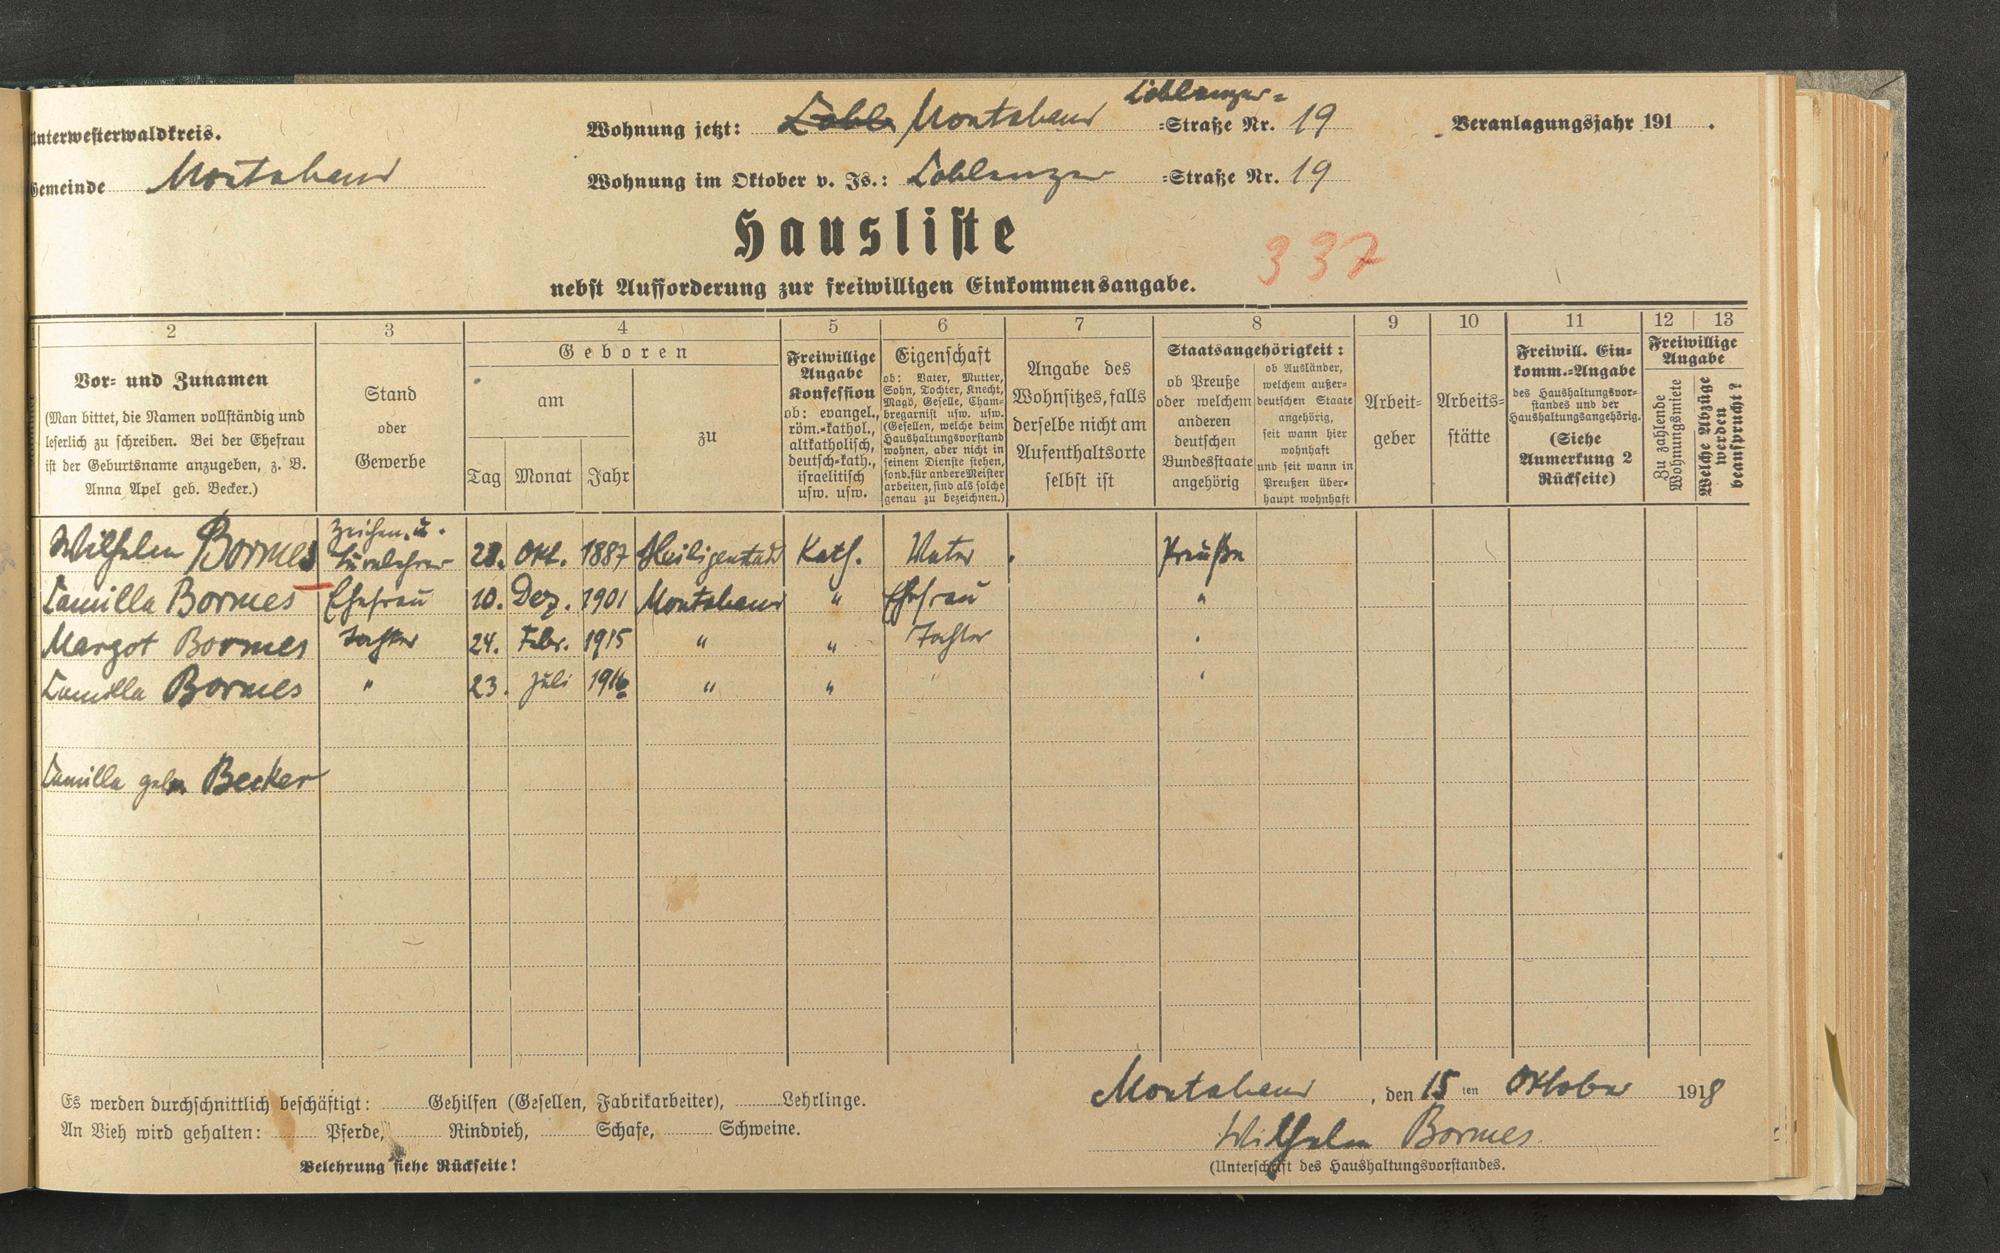 Unterwesterwaldkreis.
Gemeinde Montabaur
Wohnung jetzt: Cobl. Montabaur Coblenzer-Straße Nr. 19
Wohnung im Oktober v. Js.: Coblenzer-Straße Nr. 19
Veranlagungsjahr 191 .
Hausliste
337
nebst Aufforderung zur freiwilligen Einkommensangabe.
2 3 4 5 6 7 8 9 10 11 12 13
Vor- und Zunamen
(Man bittet, die Namen vollständig und
leserlich zu schreiben. Bei der Ehefrau
ist der Geburtsname anzugeben, z. B.
Anna Apel geb. Becker.)
Stand
oder
Gewerbe
Geboren
am
Tag Monat Jahr
zu
Freiwillige
Angabe
Konfession
ob: evangel.,
röm.-kathol.,
altkatholisch,
deutsch-kath.,
israelitisch
usw. usw.
Eigenschaft
ob: Vater, Mutter,
Sohn, Tochter, Knecht,
Magd, Geselle, Cham-
bregarnist usw. usw.
(Gesellen, welche beim
Haushaltungsvorstand
wohnen, aber nicht in
seinem Dienste stehen,
sond. für andere Meister
arbeiten, sind als solche
genau zu bezeichnen.)
Angabe des
Wohnsitzes, falls
derselbe nicht am
Aufenthaltsorte
selbst ist
Staatsangehörigkeit:
ob Preuße
oder welchem
anderen
deutschen
Bundesstaate
angehörig
ob Ausländer,
welchem außer-
deutschen Staate
angehörig,
seit wann hier
wohnhaft
und seit wann in
Preußen über-
haupt wohnhaft
Arbeit-
geber
Arbeits-
stätte
Freiwill. Ein-
komm.-Angabe
des Haushaltungsvor-
standes und der
Haushaltungsangehörig.
(Siehe
Anmerkung 2
Rückseite)
Freiwillige
Angabe
Zu zahlende
Wohnungsmiete
Welche Abzüge
werden
beansprucht?
Wilhelm Bormes Zeichen- u. Turnlehrer 28. Okt. 1887 Heiligenstadt Kath. Vater Preuße
Camilla Bormes Ehefrau 10. Dez. 1901 Montabaur " Ehefrau "
Margot Bormes Tochter 24. Febr. 1915 " " Tochter "
Camilla Bormes " 23. Juli 1916 " " " "
Camilla geb. Becker
Es werden durchschnittlich beschäftigt: Gehilfen (Gesellen, Fabrikarbeiter), Lehrlinge.
An Vieh wird gehalten: Pferde, Rindvieh, Schafe, Schweine.
Belehrung siehe Rückseite!
Montabaur, den 15ten Oktober 1918
Wilhelm Bormes
(Unterschrift des Haushaltungsvorstandes.